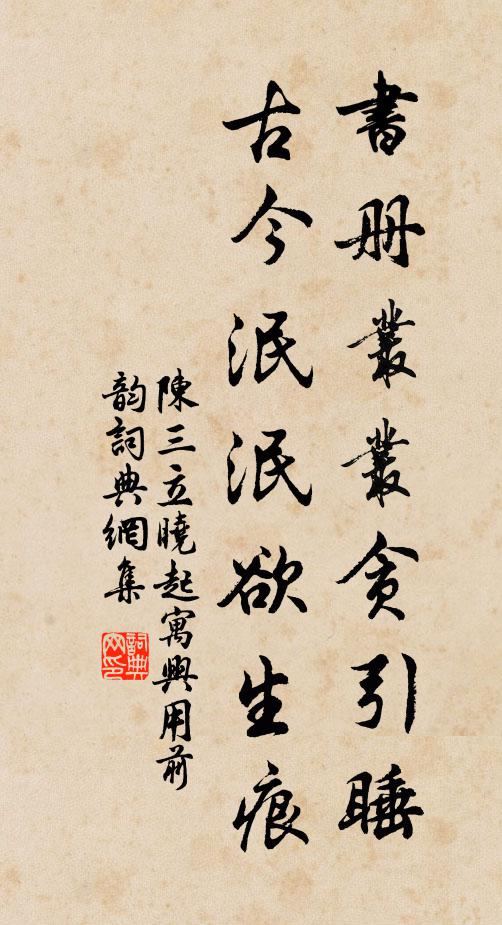 書册叢叢貪引睡
古今泯泯欲生痕
陳三立曉起寓興用前
韵詞典網集
詞典網印